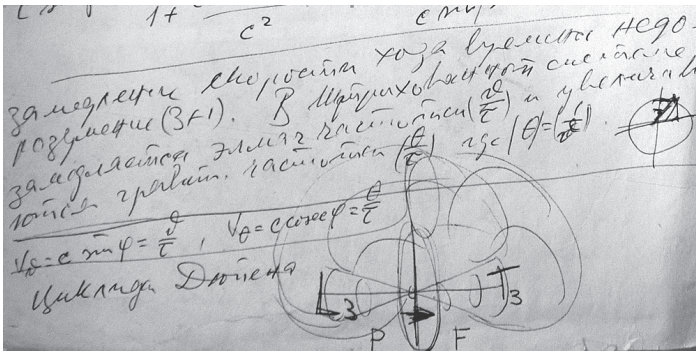 1 +
c²
c sin φ
замедление скорости хода времени недо-
разумение (3+1). В штрихованной системе
замедляется эл.маг частотой (ϑ/τ) и увеличив
гравит. частотой (θ/τ) где |θ| = 
V_ϑ = c sin φ = ϑ/τ , V_θ = c cos φ = θ/τ
Циклида Дюпена
3 3
P F